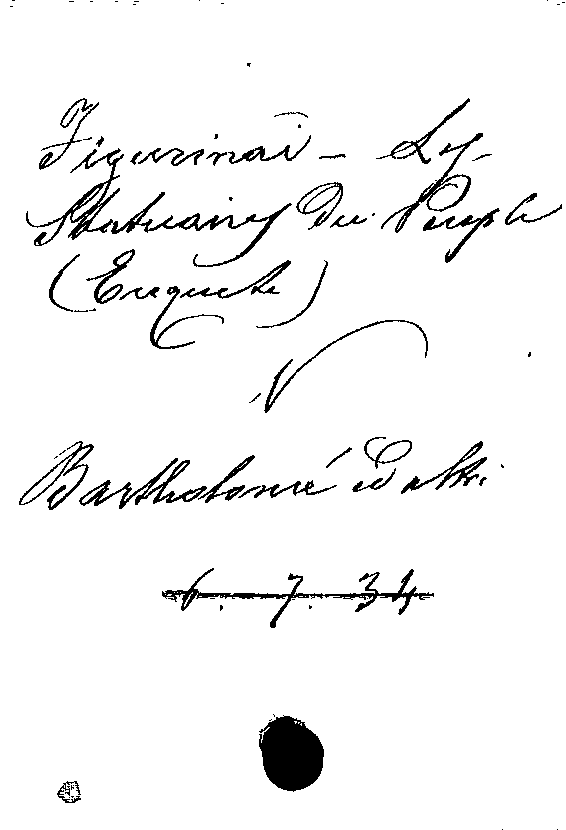 Figurinai - Ly-
Statuaires Du Peuple
(Enquete)
V
Bartholomé
6. 7. 34